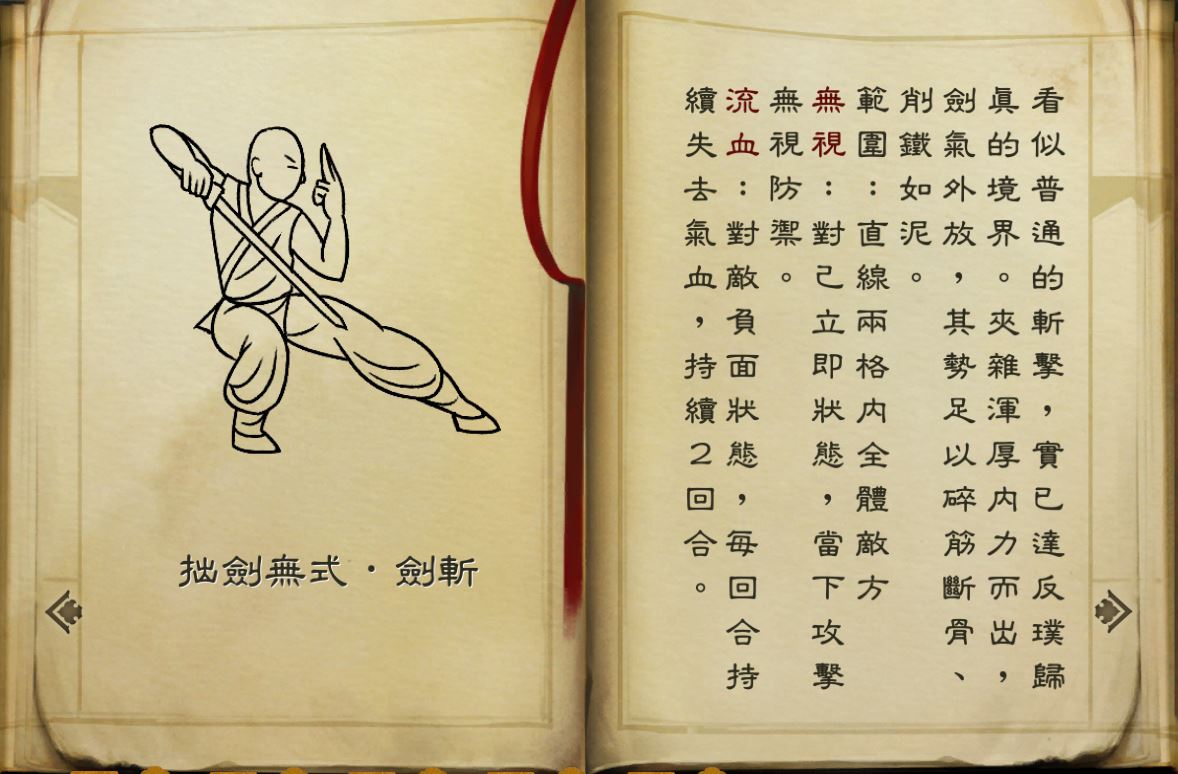 拙劍無式·劍斬
看似普通的斬擊，實已達反璞歸
真的境界。夾雜渾厚內力而出，
劍氣外放，其勢足以碎筋斷骨、
削鐵如泥。
範圍：直線兩格內全體敵方
無視：對己立即狀態，當下攻擊
無視防禦。
流血：對敵負面狀態，每回合持
續失去氣血，持續2回合。